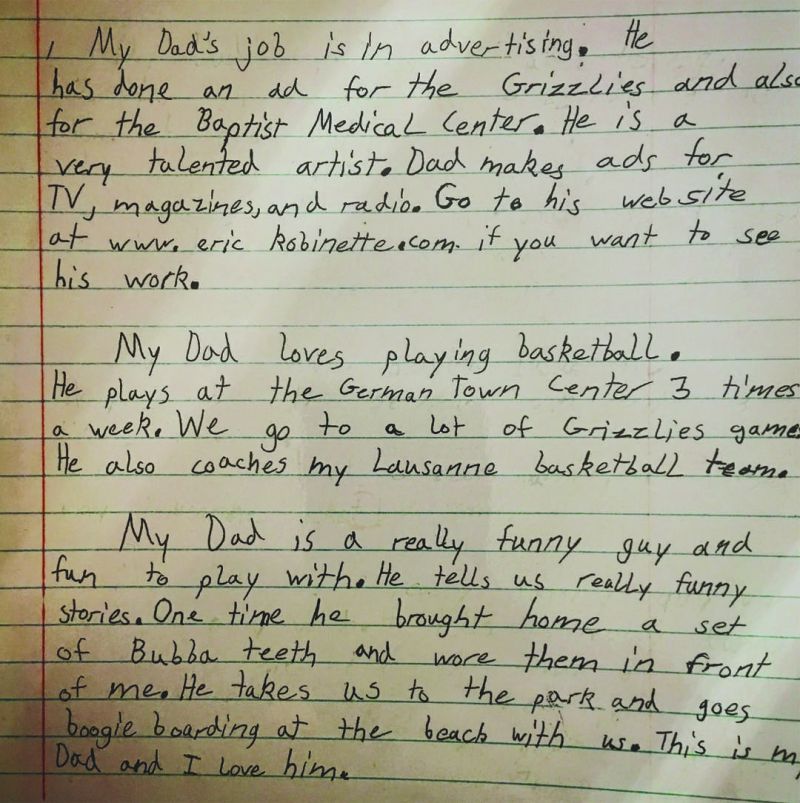 , My Dad's job is in advertising. He
has done an ad for the Grizzlies and also
for the Baptist Medical Center. He is a
very talented artist. Dad makes ads for
TV, magazines, and radio. Go to his website
at www.erickobinette.com. if you want to see
his work.
My Dad loves playing basketball.
He plays at the German Town Center 3 times
a week. We go to a lot of Grizzlies game
He also coaches my Lausanne basketball team.
My Dad is a really funny guy and
fun to play with. He tells us really funny
stories. One time he brought home a set
of Bubba teeth and wore them in front
of me. He takes us to the park and goes
boogie boarding at the beach with us. This is m
Dad and I love him.